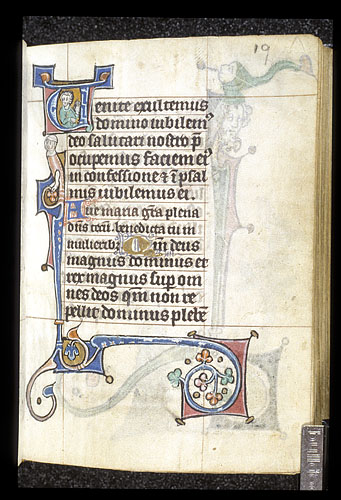 19
Venite exultemus
domino iubilem᷒
deo salutari nostro p̄
ocupemus faciem ei᷒
in confessione & ī psal
mis iubilemus ei.
Aue maria gr̄a plena
dn̄s tecū. benedicta tu in
mulieribꝰ Qm̄ deus
magnus dominus et
rex magnus sup om
nes deos qm̄ non re
pellit dominus plebē